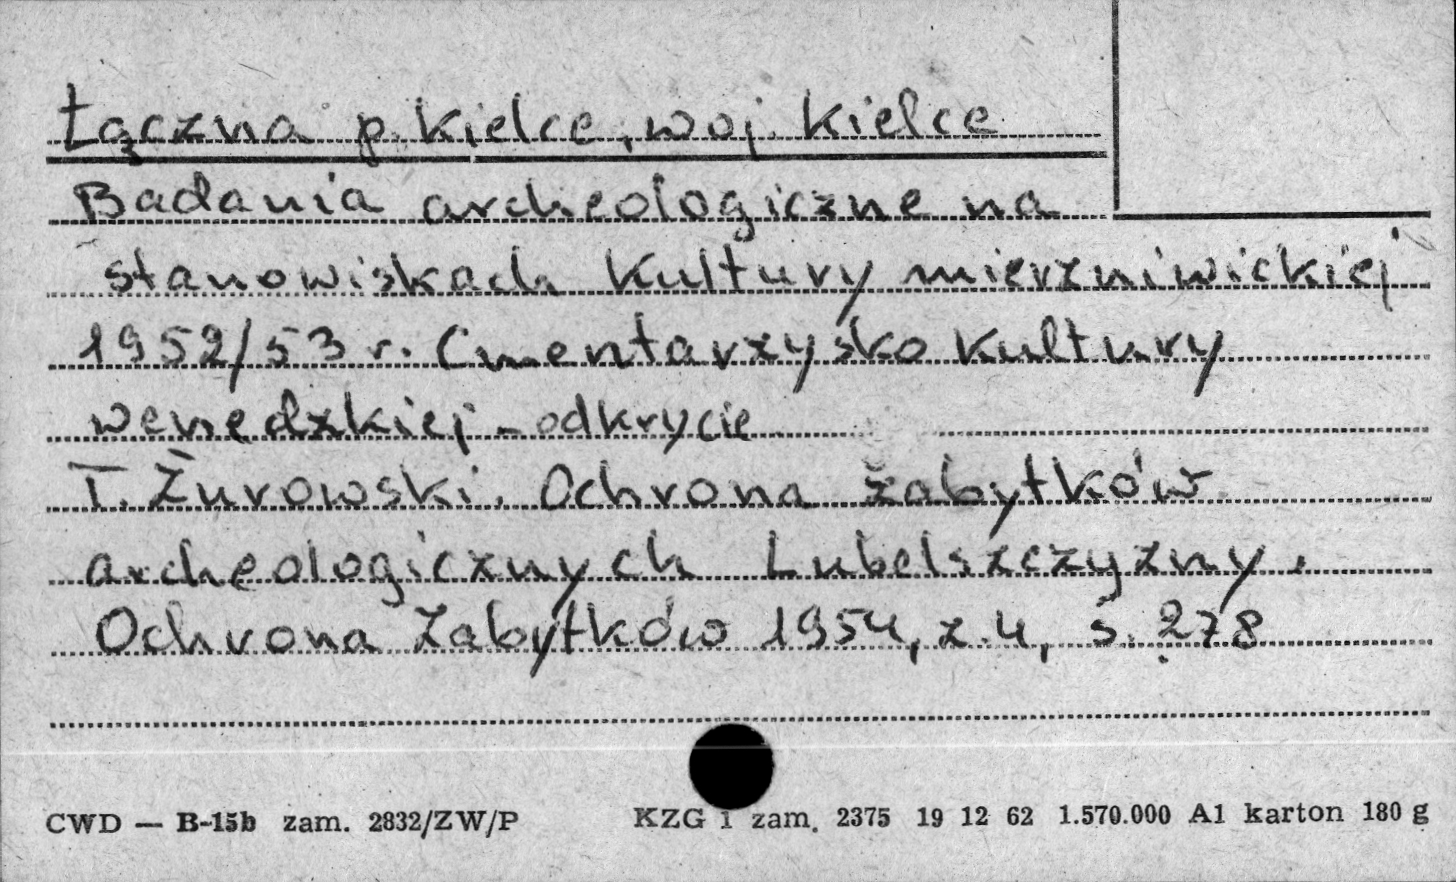 Łączna p. Kielce, woj. Kielce
Badania archeologiczne na
stanowiskach Kultury mierzniwickiej
1952/53 r. Cmentarzysko Kultury
wenedzkiej - odkrycie
T. Żurowski. Ochrona zabytków
archeologicznych Lubelszczyzny.
Ochrona Zabytków 1954, z. 4, s. 278
CWD — B-15b zam. 2832/ZW/P KZG 1 zam. 2375 19 12 62 1.570.000 A1 karton 180 g